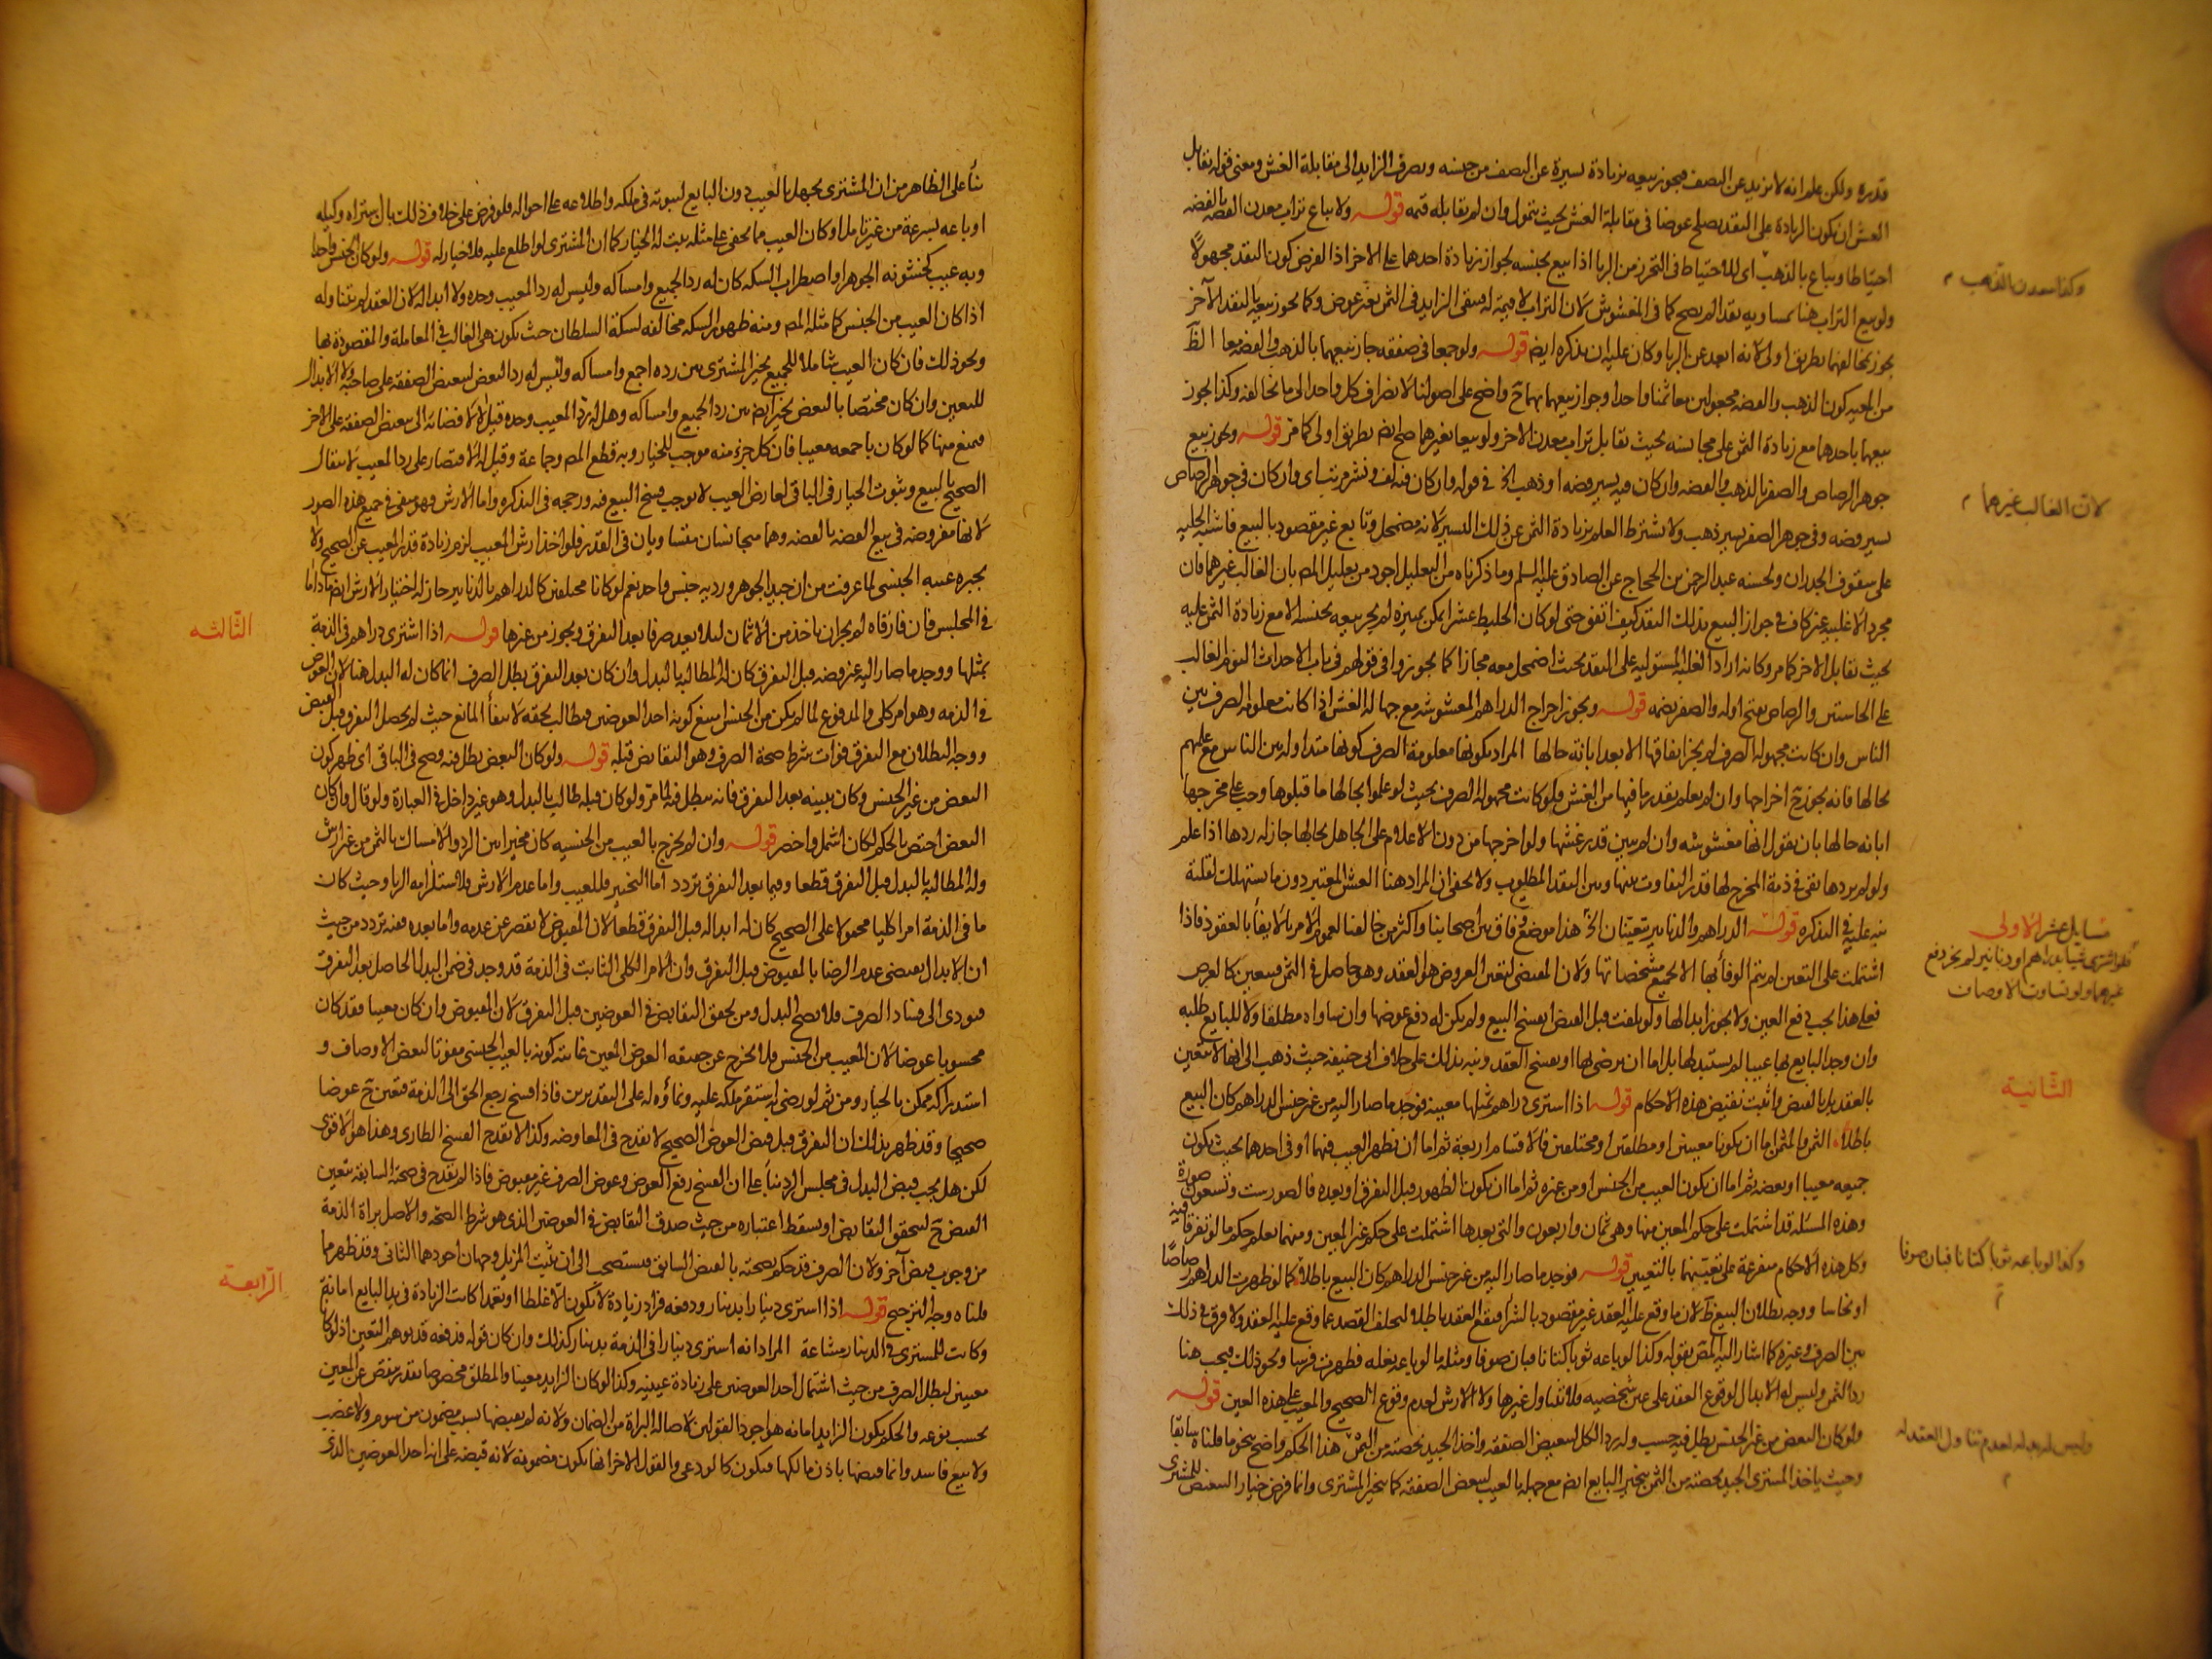 قدره ولكن علم انه لا يزيد عن النصف فيجوز بيعه بزيادة يسيرة عن النصف من جنسه ويصرف الزايد الى مقابلة الغش ومعنى قوله يقابل
الغش ان يكون الزيادة على النقد يصلح عوضا في مقابلة الغش بحيث يتمول وان لم يقابله قيمه قوله ولا يباع تراب معدن الفضه بالفضه
احتياطا ويباع بالذهب اى للاحتياط في التحرز من الربا اذا بيع بجنسه لجواز زيادة احدهما على الاخر اذ الفرض كون النقد مجهولا
وكذا معدن الذهب
ولو بيع التراب هنا بمساويه نقدا لم يصح كما في المغشوش لان التراب لا قيمة له فيبقى الزايد في الثمن بغير عوض وكما يجوز بيعه بالنقد الآخر
يجوز بمخالفهما بطريق اولى لانه ابعد عن الربا وكان عليه ان يذكره ايض قوله ولو جمعا في صفقه جاز بيعهما بالذهب والفضه معا الظ
من المعيه كون الذهب والفضه مجعولين معا ثمنا واحدا وجواز بيعهما بهما ح واضح على اصولنا لانصراف كل واحد الى ما يخالفه وكذا يجوز
بيعهما باحدهما مع زيادة الثمن على مجانسه بحيث يقابل تراب معدن الاخر ولو بيعا بغيرهما صح ايض بطريق اولى كما مر قوله ويجوز بيع
جوهر الرصاص والصفر بالذهب والفضه وان كان فيه يسير فضه او ذهب الخ في قوله وان كان فيه لف ونشر مرتب اى وان كان في جوهر الرصاص
لان الغالب غيرهما
يسير فضه وفي جوهر الصفر يسير ذهب ولا يشترط العلم بزيادة الثمن عن ذلك اليسير لانه مضمحل وتابع غير مقصود بالبيع فاشبه الحليه
على سقوف الجدران ولحسنه عبد الرحمن بن الحجاج عن الصادق عليه السلم وما ذكرناه من التعليل اجود من تعليل المص بان الغالب غيرهما فان
مجرد الاغلبيه غير كاف في جواز البيع بذلك النقد كيف اتفق حتى لو كان الخليط عشرا يمكن تميزه لم يجز بيعه بجنسه الا مع زيادة الثمن عليه
بحيث يقابل الاخر كما مر وكانه اراد الغلبة المستوليه على النقد بحيث اضمحل معه مجازا كما يجوزوا في قولهم في باب الاحداث النوم الغالب
على الحاستين والرصاص بفتح اوله والصفر بضمه قوله ويجوز اخراج الدراهم المغشوشه مع جهالة الغش اذا كانت معلومة الصرف بين
الناس وان كانت مجهولة الصرف لم يجز انفاقها الا بعد ابانة حالها المراد بكونها معلومة الصرف كونها متداولة بين الناس مع علمهم
بحالها فانه يجوز ح اخراجها وان لم يعلم بقدر ما فيها من الغش فلو كانت مجهولة الصرف بحيث لو علموا بحالها ما قبلوها وجب على مخرجها
ابانة حالها بان يقول انها مغشوشه وان لم يبين قدر غشها ولو اخرجها من دون الاعلام على الجاهل بحالها جاز له ردها اذا علم
ولو لم يردها بقى في ذمة المخرج لها قدر التفاوت بينها وبين النقد المطلوب ولا يخفى ان المراد هنا الغش المعتبر دون ما يستهلك لقلته
نبه عليه في التذكره قوله الدراهم والدنانير يتعينان الخ هذا موضع وفاق بين اصحابنا واكثر من خالفنا لعموم الامر بالايفاء بالعقود فاذا
مسايل عشر الاولى
فلو اشترى شيئا بدراهم او دنانير لم يجز دفع
غيرها ولو تساوت الاوصاف
اشتملت على التعيين لم يتم الوفاء بها الا بجميع مشخصاتها ولان المقتضى لتعين العروض هو العقد وهو حاصل في الثمن فيتعين كالعرض
فعلى هذا يجب دفع العين ولا يجوز ابدالها ولو تلفت قبل القبض انفسخ البيع ولم يكن له دفع عوضها وان ساواه مطلقا ولا للبايع طلبه
وان وجد البايع بها عيبا لم يستبدلها بل اما ان يرضى بها او يفسخ العقد ونبه بذلك على خلاف ابى حنيفة حيث ذهب الى انها لا تتعين
الثانية
بالعقد بل بالقبض واثبت نقيض هذه الاحكام قوله اذا اشترى دراهم بمثلها معينة فوجد ما صار اليه من غير جنس الدراهم كان البيع
باطلا الثمن والمثمن اما ان يكونا معينين او مطلقين او مختلفين فالاقسام اربعة ثم اما ان يظهر العيب فيهما او في احدهما بحيث يكون
جميعه معيبا او بعضه ثم اما ان يكون العيب من الجنس او من غيره ثم اما ان يكون الظهور قبل التفرق او بعده فالصور ست وتسعون صورة
وهذه المسئله قد اشتملت على حكم المعين منها وهى ثمان واربعون والتى بعدها اشتملت على حكم غير المعين ومنهما يعلم حكم ما لو تفرقا فيه
وكل هذه الاحكام متفرعة على تعينهما بالتعيين قوله فوجد ما صار اليه من غير جنس الدراهم كان البيع باطلا كما لو ظهرت الدراهم رصاصا
وكذا لو باعه ثوبا كتانا فبان صوفا
او نحاسا ووجه بطلان البيع ظ لان ما وقع عليه العقد غير مقصود بالشراء فيقع العقد باطلا لتخلف القصد عما وقع عليه العقد ولا فرق في ذلك
بين الصرف وغيره كما اشار اليه المص بقوله وكذا لو باعه ثوبا كتانا فبان صوفا ومثله ما لو باعه بغله فظهرت فرسا ونحو ذلك فيجب هنا
رد الثمن وليس له الابدال لوقوع العقد على عين شخصيه فلا يتناول غيرها ولا الارش لعدم وقوع الصحيح والمعيب على هذه العين قوله
ولو كان البعض من غير الجنس بطل فيه حسب وله رد الكل لتبعيض الصفقه واخذ الجيد بحصته من الثمن هذا الحكم واضح بنحو ما قلناه سابقا
وليس له بدله لعدم تناول العقد له
وحيث ياخذ المشترى الجيد بحصته من الثمن يتخير البايع ايض مع جهله بالعيب لتبعض الصفقه كما يتخير المشترى وانما فرض خيار التبعيض للمشترى
بناء على الظاهر من ان المشترى يجهل بالعيب دون البايع لثبوته في ملكه واطلاعه على احواله فلو فرض على خلاف ذلك بان اشتراه وكيله
او باعه بسرعة من غير تامل او كان العيب مما يخفى على مثله يثبت له الخيار كما ان المشترى لو اطلع عليه فلا خيار له قوله ولو كان الجنس واحدا
وبه عيب كخشونه الجوهر او اضطراب السكه كان له رد الجميع وامساكه وليس له رد المعيب وحده ولا ابداله لان العقد لم يتناوله
اذا كان العيب من الجنس كما مثله المص ومنه ظهور السكه مخالفه لسكة السلطان حيث يكون هى الغالب في المعاملة والمقصودة بها
ونحو ذلك فان كان العيب شاملا للجميع تخير المشترى بين رده اجمع وامساكه وليس له رد البعض لتبعض الصفقه على صاحبه ولا الابدال
للتعين وان كان مختصا بالبعض تخير ايض بين رد الجميع وامساكه وهل له رد المعيب وحده قيل لا لافضائه الى تبعض الصفقه على الاخر
فيمنع منها كما لو كان باجمعه معيبا فان كل جزء منه موجب للخيار وبه قطع المص وجماعة وقيل له الاقتصار على رد المعيب لانتقال
الصحيح بالبيع وثبوت الخيار في الباقى لعارض العيب لا يوجب فسخ البيع فيه ورجحه في التذكره واما الارش فهو منفى في جميع هذه الصور
لانها مفروضه في بيع الفضه بالفضه وهما متجانسان متساويان في القدر فلو اخذ ارش المعيب لزم زيادة قدر المعيب عن الصحيح ولا
يجبره عيبه الجنسى لما عرفت من ان جيد الجوهر ورديه جنس واحد نعم لو كانا مختلفين كالدراهم بالدنانير جاز له اختيار الارش ايض ما داما
في المجلس فان فارقاه لم يجز ان ياخذ من الاثمان لئلا يعد صرفا بعد التفرق ويجوز من غيرها قوله اذا اشترى دراهم في الذمة
الثالثه
بمثلها ووجد ما صار اليه غير فضه قبل التفرق كان له المطالبه بالبدل وان كان بعد التفرق بطل الصرف انما كان له البدل هنا لان العوض
في الذمه وهو امر كلى والمدفوع لما لم يكن من الجنس امتنع كونه احد العوضين فيطالب بحقه لانتفاء المانع حيث لم يحصل التفرق قبل القبض
ووجه البطلان مع التفرق فوات شرط صحة الصرف وهو التقابض قبله قوله ولو كان البعض بطل فيه وصح في الباقى اى ظهر كون
البعض من غير الجنس وكان تبينه بعد التفرق فانه يبطل فيه لما مر ولو كان قبله طالب بالبدل وهو غير داخل في العبارة ولو قال وان كان
البعض اختص بالحكم لكان اشمل واخصر قوله وان لم يخرج بالعيب من الجنسيه كان مخيرا بين الرد والامساك بالثمن من غير ارش
وله المطالبه بالبدل قبل التفرق قطعا وفيما بعد التفرق تردد اما التخيير فللعيب واما عدم الارش فلاستلزامه الربا وحيث كان
ما في الذمة امرا كليا محمولا على الصحيح كان له ابداله قبل التفرق قطعا لان المقبوض لا يقصر عن عدمه واما بعده ففيه تردد من حيث
ان الابدال يقتضى عدم الرضا بالمقبوض قبل التفرق وان الامر الكلى الثابت في الذمة قد وجد في ضمن البدل الحاصل بعد التفرق
فيؤدى الى فساد الصرف فلا يصح البدل ومن تحقق التقابض في العوضين قبل التفرق لان المقبوض وان كان معيبا فقد كان
محسوبا عوضا لان المعيب من الجنس فلا يخرج عن حقيقه العوض المعين غايته كونه بالعيب الجنسى مفوتا لبعض الاوصاف و
استدراكه ممكن بالخيار ومن ثم لو رضى به استقر ملكه عليه ونماؤه له على التقديرين فاذا فسخ رجع الحق الى الذمة فتعين ح عوضا
صحيحا وقد ظهر بذلك ان التفرق قبل قبض العوض الصحيح لا يقدح في المعاوضه وكذا لا يقدح الفسخ الطارى وهذا هو الاقوى
لكن هل يجب قبض البدل في مجلس الرد بناء على ان الفسخ رفع العوض وعوض الصرف غير مقبوض فاذا لم يقدح في صحته السابقه يتعين
القبض ح ليتحقق التقابض او يسقط اعتباره من حيث صدق التقابض في العوضين الذى هو شرط الصحه والاصل براة الذمة
من وجوب قبض آخر ولان الصرف قد حكم بصحته بالقبض السابق فيستصحب الى ان يثبت المزيل وجهان اجودهما الثانى وقد ظهر مما
قلناه وجه الترجيح قوله اذا اشترى دينارا بدينار ودفعه فزاد زيادة لا تكون الا غلطا او تعمدا كانت الزيادة في يد البايع امانة
الرابعة
وكانت للمشترى في الدينار مشاعة المراد انه اشترى دينارا في الذمة بدينار كذلك وان كان قوله فدفعه قد يوهم التعين اذ لو كانا
معينين لبطل الصرف من حيث اشتمال احد العوضين على زيادة عينيه وكذا لو كان الزايد معينا والمطلق مخصوصا بقدر ينقص عن المعين
بحسب نوعه والحكم بكون الزايد امانه هو اجود القولين لاصالة البراة من الضمان ولانه لم يقبضها بسبب مضمون من سوم ولا غصب
ولا بيع فاسد وانما قبضها باذن مالكها فيكون كالودعى والقول الاخر انها تكون مضمونة لانه قبضه على انه احد العوضين الذى